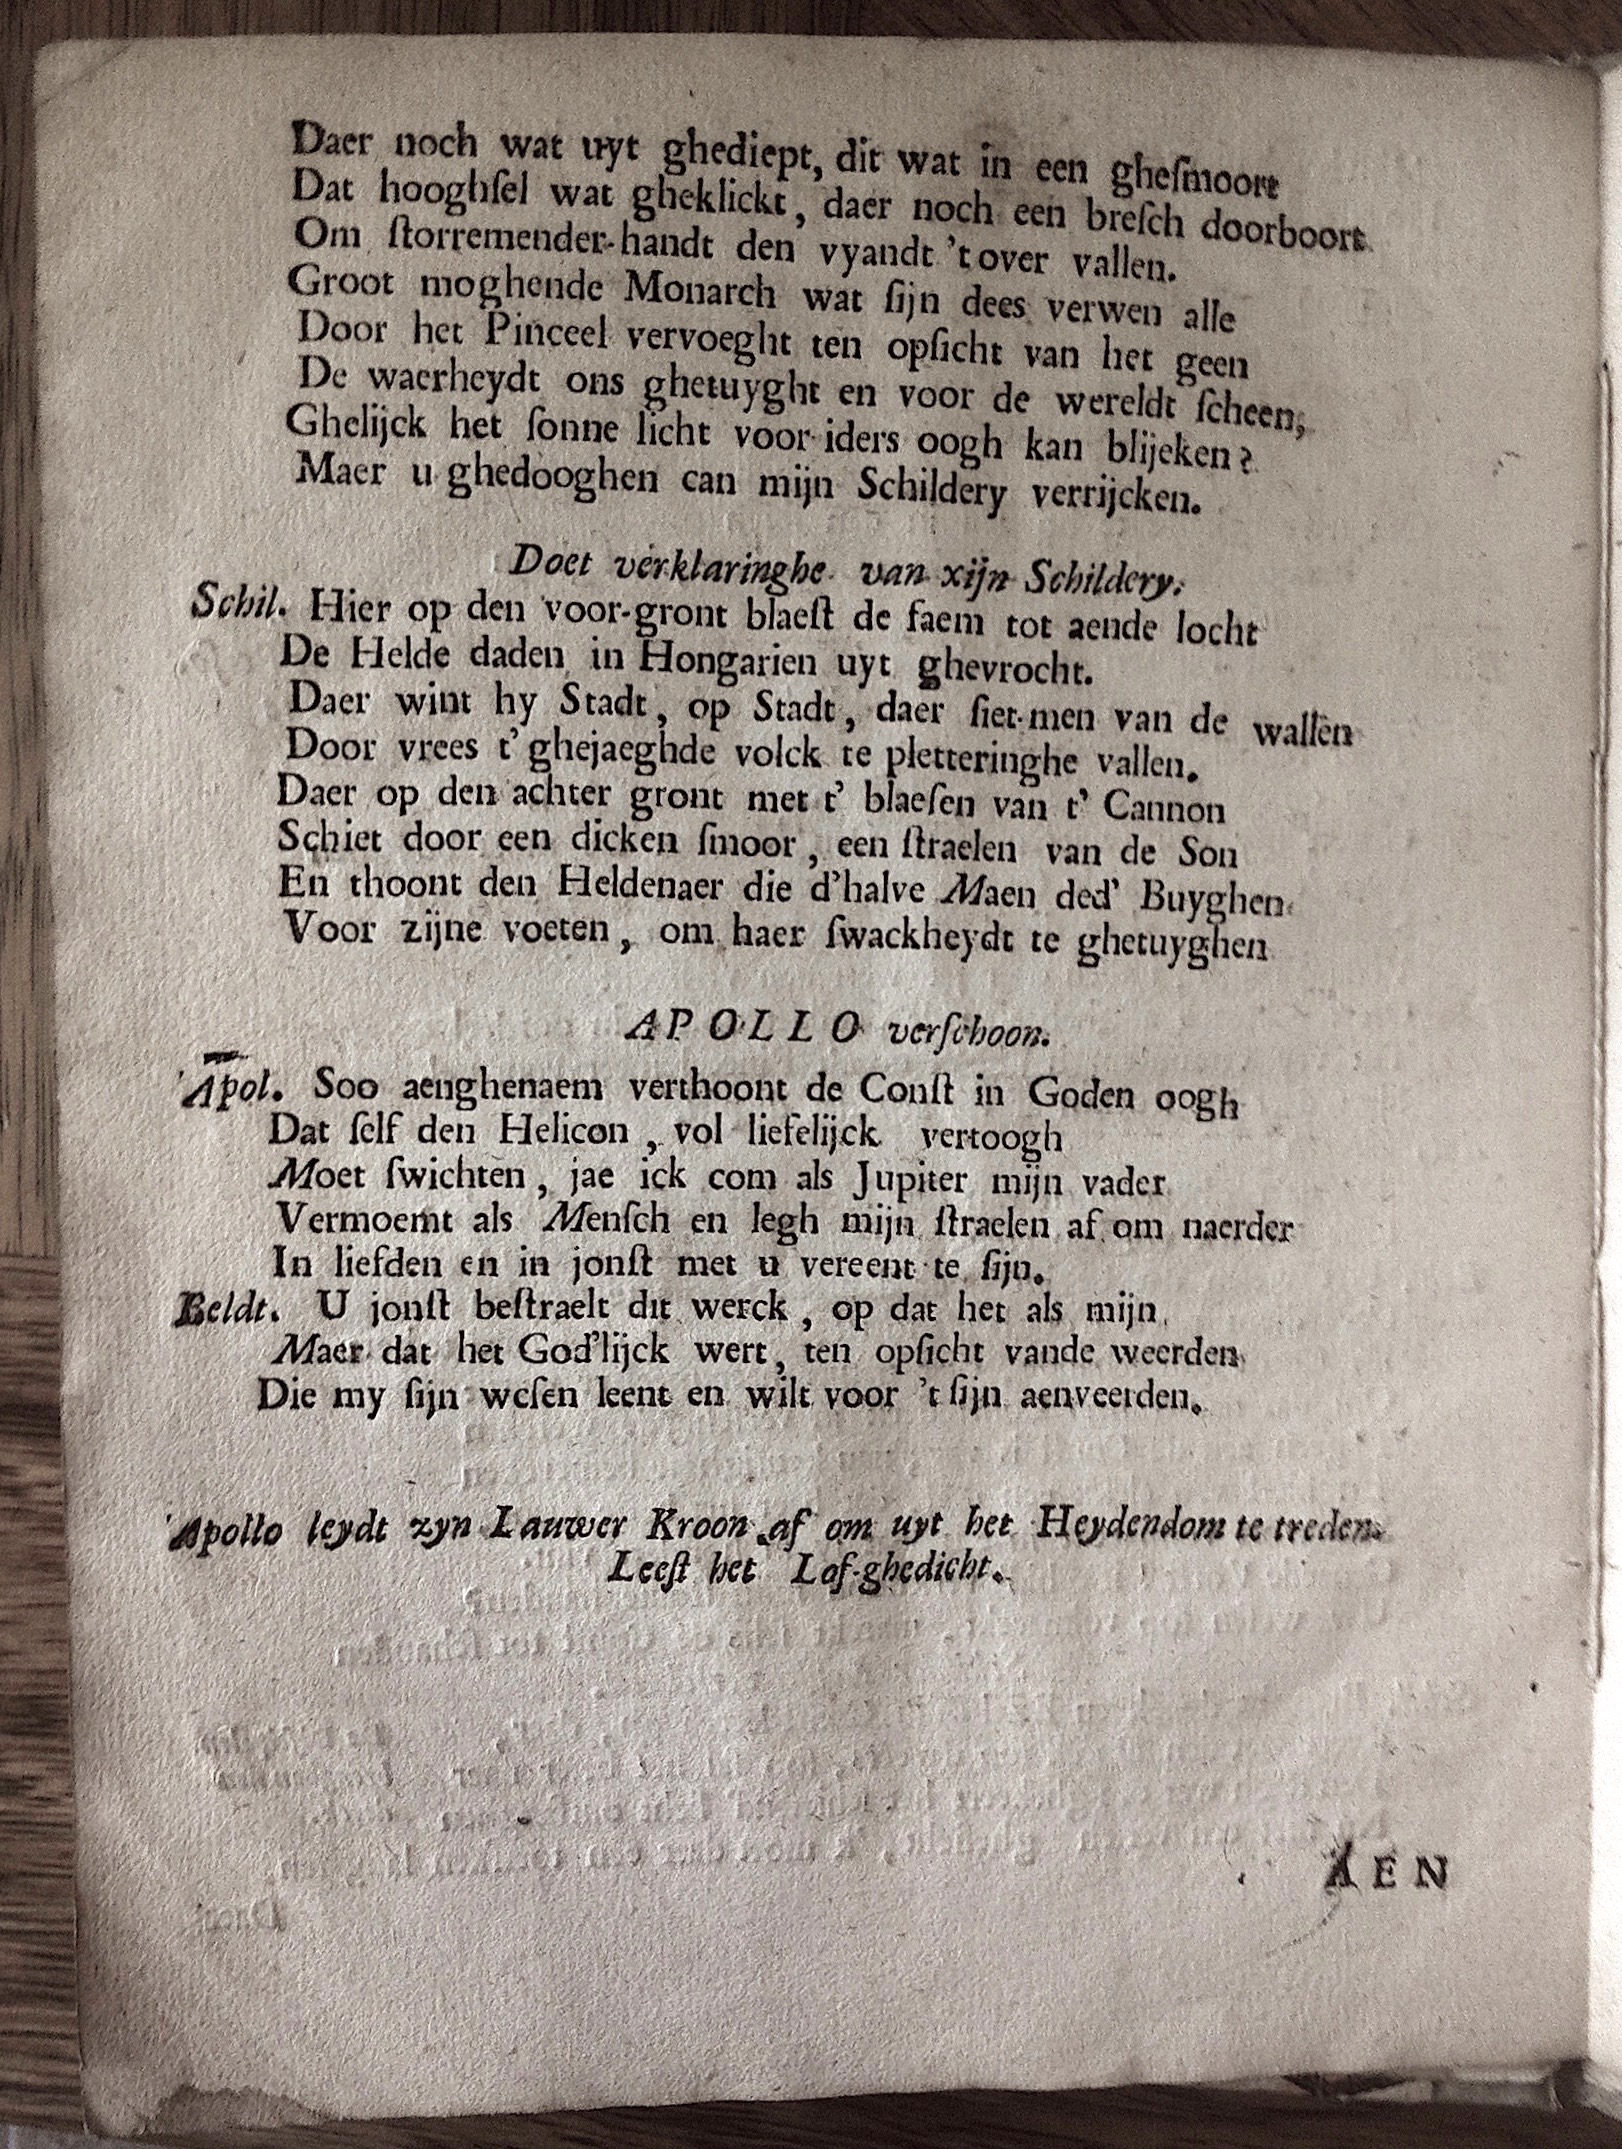 Daer noch wat uyt ghediept, dit wat in een gheſmoort
Dat hooghſel wat gheklickt, daer noch een breſch doorboort
Om ſtorremender-handt den vyandt 't over vallen.
Groot moghende Monarch wat ſijn dees verwen alle
Door het Pinceel vervoeght ten opſicht van het geen
De waerheydt ons ghetuyght en voor de wereldt ſcheen,
Ghelijck het ſonne licht voor iders oogh kan blijcken?
Maer u ghedooghen can mijn Schildery verrijcken.
Doet verklaringhe van xijn Schildery.
Schil. Hier op den voor-gront blaeſt de faem tot aende locht
De Helde daden in Hongarien uyt ghevrocht.
Daer wint hy Stadt, op Stadt, daer ſiet-men van de wallen
Door vrees t' ghejaeghde volck te pletteringhe vallen.
Daer op den achter gront met t' blaeſen van t' Cannon
Schiet door een dicken ſmoor, een ſtraelen van de Son
En thoont den Heldenaer die d'halve Maen ded' Buyghen
Voor zijne voeten, om haer ſwackheydt te ghetuyghen
APOLLO verſchoon.
Apol. Soo aenghenaem verthoont de Conſt in Goden oogh
Dat ſelf den Helicon, vol liefelijck vertoogh
Moet ſwichten, jae ick com als Jupiter mijn vader
Vermoemt als Menſch en legh mijn ſtraelen af om naerder
In liefden en in jonſt met u vereent te ſijn.
Beldt. U jonſt beſtraelt dit werck, op dat het als mijn
Maer dat het God'lijck wert, ten opſicht vande weerden
Die my ſijn weſen leent en wilt voor 't ſijn aenveerden.
Apollo leydt zyn Lauwer Kroon af om uyt het Heydendom te treden.
Leeſt het Lof-ghedicht.
AEN